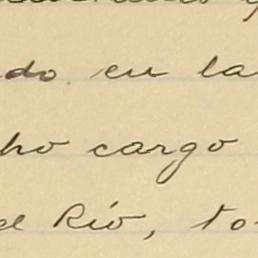 do en la
ho cargo
el Río, to